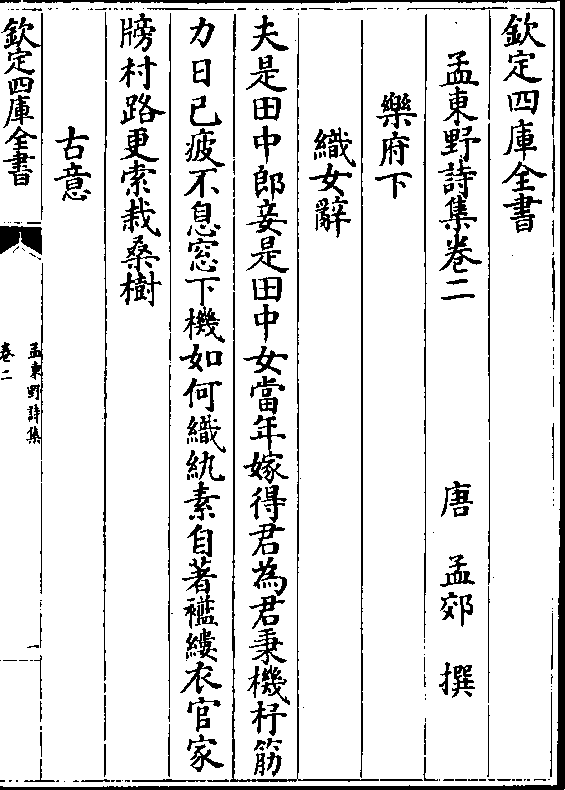 欽定四庫全書
孟東野詩集卷二
唐 孟郊 撰
樂府下
織女辭
夫是田中郎妾是田中女當年嫁得君為君秉機杼筋
力日已疲不息窓下機如何織紈素自著襤縷衣官家
牓村路更索栽桑樹
古意
欽定四庫全書
孟東野詩集
卷二
一